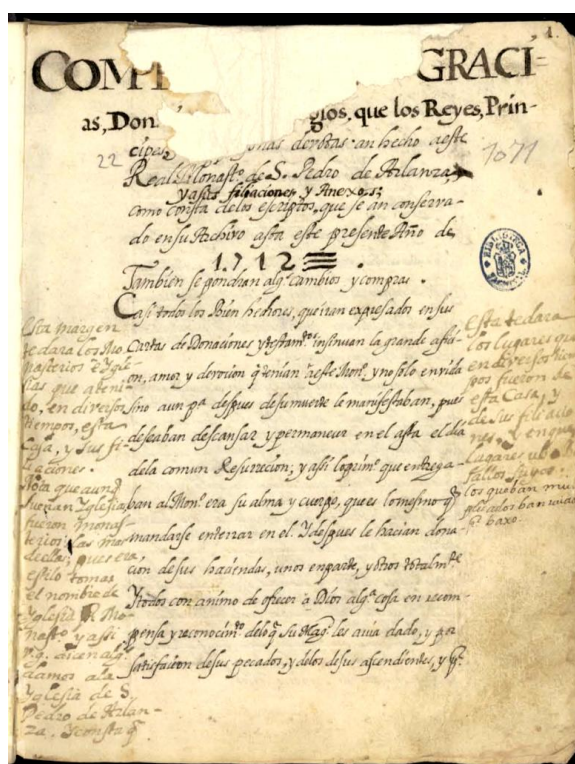 1.
COMP GRACI-
as, Don gios, que los Reyes, Prin-
cipes, onas devotas an hecho aeste
22
1071
Real Monastº de S. Pedro de Arlanza,
yasus filiaciones, y Anexos;
como consta delos escriptos, que se an conserva-
do ensu Archivo asta este presente Año de
1712
Tambien se pondran algs cambios y compras.
Casi todos los Bien hechores, queiran expresados en sus
Cartas de Donaciones ytestamtos insinuan la grande afisi-
on, amor, y devocion q tenian aeste Monº, y no solo en vida
sino aun pª despues desumuerte lemanifestaban, pues
deseaban descansar y permanecer en el asta el dia
dela comun Resurecion; y assi loprimº que entrega-
ban al Monº era su alma y cuerpo, ques lomesmo q
mandarse enterrar en el. Ydespues le hacian dona-
cion desus haciendas, unos enparte, yotros totalmte
Ytodos con animo de ofrecer a Dios algª cosa en recom-
pensa y reconocimto deloq su Magd les avia dado, y por
satisfacion desus pecados, y delos desus ascendientes, y
Esta margen
te dara los Mo
nasterios e Ygle
sias que a teni
do, en diversos
tiempos, esta
Casa, y sus fi-
liaciones.
Nota que aunq
suenan Yglesias
fueron monas-
terios las mas
de ellas; pues era
estilo tomar
el nombre de
Yglesia Mo-
nastº y assi
v.g. dicen algs
damos ala
Yglesia de S.
Pedro de Arlan-
za. Yconsta q
Esta te dara
los lugares que
en diversos tiem
pos fueron de
esta Casa, y
de sus filiacio
nes, y en que
lugares ubo
BIBLIOTECA NACIONAL